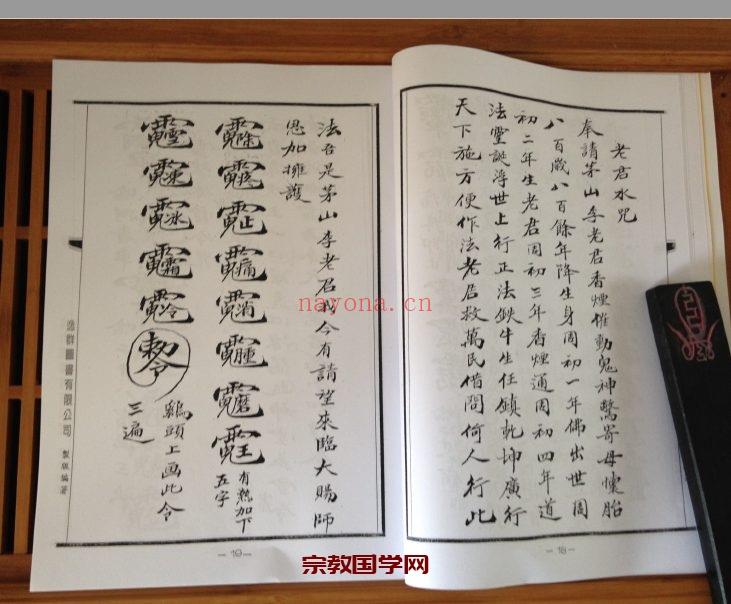 老君水咒
奉請茅山李老君香煙催動鬼神驚寄母懷胎
八百歲八百餘年降生身周初一年佛出世周
初二年生老君周初三年香煙通周初四年道
法靈誕浮世上行正法鉄牛生任鎮乾坤廣行
天下施方便作法老君救萬民借問何人行此
-18-
法吾是茅山李老君我今有請望來臨大賜師
恩加擁護
有熱加下
五字
敕令
鷄頭上画此令
三遍
逸群圖書有限公司 製版編著
-19-
nayona.cn
宗教国学网